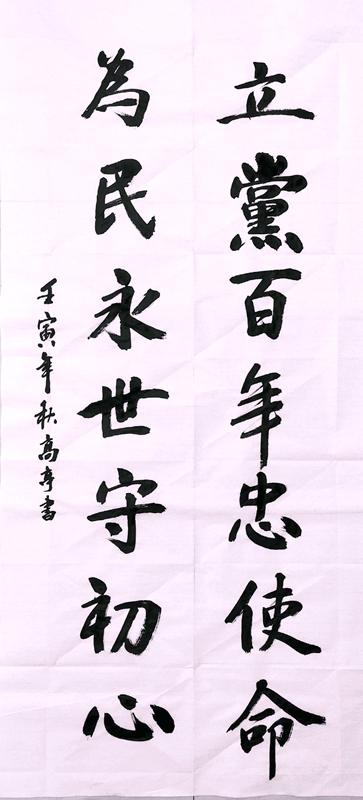 立黨百年忠使命
為民永世守初心
壬寅年秋高亭書